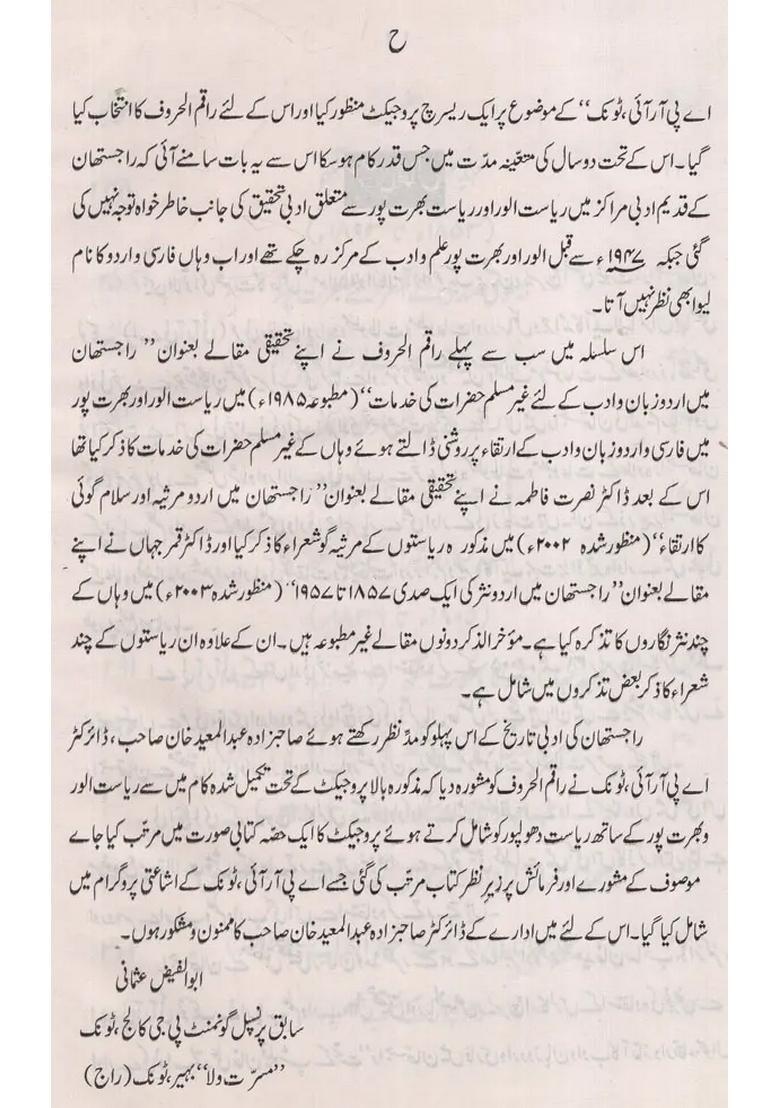 ح
اے پی آر آئی، ٹونک‘‘ کے موضوع پر ایک ریسرچ پروجیکٹ منظور کیا اور اس کے لئے راقم الحروف کا انتخاب کیا
گیا۔ اس کے تحت دو سال کی متعیّنہ مدّت میں جس قدر کام ہو سکا اس سے یہ بات سامنے آئی کہ راجستھان
کے قدیم ادبی مراکز میں ریاست الور اور ریاست بھرت پور سے متعلق ادبی تحقیق کی جانب خاطر خواہ توجہ نہیں کی
گئی جبکہ ۱۹۴۷ء سے قبل الور اور بھرت پور علم و ادب کے مرکز رہ چکے تھے اور اب وہاں فارسی و اردو کا نام
لیوا بھی نظر نہیں آتا۔
اس سلسلہ میں سب سے پہلے راقم الحروف نے اپنے تحقیقی مقالے بعنوان ’’راجستھان
میں اردو زبان و ادب کے لئے غیر مسلم حضرات کی خدمات‘‘ (مطبوعہ ۱۹۸۵ء) میں ریاست الور اور بھرت پور
میں فارسی و اردو زبان و ادب کے ارتقاء پر روشنی ڈالتے ہوئے وہاں کے غیر مسلم حضرات کی خدمات کا ذکر کیا تھا
اس کے بعد ڈاکٹر نصرت فاطمہ نے اپنے تحقیقی مقالے بعنوان ’’راجستھان میں اردو مرثیہ اور سلام گوئی
کا ارتقاء‘‘ (منظور شدہ ۲۰۰۲ء) میں مذکورہ ریاستوں کے مرثیہ گو شعراء کا ذکر کیا اور ڈاکٹر قمر جہاں نے اپنے
مقالے بعنوان ’’راجستھان میں اردو نثر کی ایک صدی ۱۸۵۷ تا ۱۹۵۷‘‘ (منظور شدہ ۲۰۰۳ء) میں وہاں کے
چند نثر نگاروں کا تذکرہ کیا ہے۔ مؤخر الذکر دونوں مقالے غیر مطبوعہ ہیں۔ ان کے علاوہ ان ریاستوں کے چند
شعراء کا ذکر بعض تذکروں میں شامل ہے۔
راجستھان کی ادبی تاریخ کے اس پہلو کو مدّ نظر رکھتے ہوئے صاحبزادہ عبدالمعید خان صاحب، ڈائرکٹر
اے پی آر آئی، ٹونک نے راقم الحروف کو مشورہ دیا کہ مذکورہ بالا پروجیکٹ کے تحت تکمیل شدہ کام میں سے ریاست الور
و بھرت پور کے ساتھ ریاست دھولپور کو شامل کرتے ہوئے پروجیکٹ کا ایک حصّہ کتابی صورت میں مرتّب کیا جاے
موصوف کے مشورے اور فرمائش پر زیرِ نظر کتاب مرتّب کی گئی جسے اے پی آر آئی، ٹونک کے اشاعتی پروگرام میں
شامل کیا گیا۔ اس کے لئے میں ادارے کے ڈائرکٹر صاحبزادہ عبدالمعید خان صاحب کا ممنون و مشکور ہوں۔
ابوالفیض عثمانی
سابق پرنسپل گورنمنٹ پی جی کالج، ٹونک
’’مسرّت ولا‘‘ بہیر، ٹونک (راج)